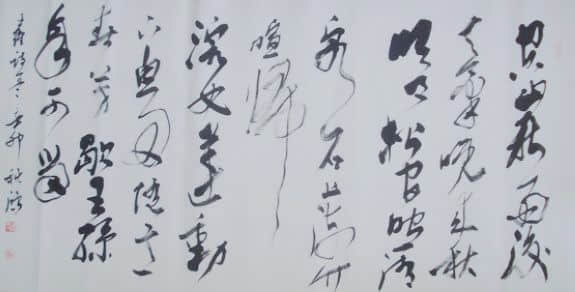 空山新雨後
天氣晚來秋
明月松間照清
泉石上流竹
喧歸
浣女蓮動
下漁舟隨意
春芳歇王孫
自可留
詩 辛卯